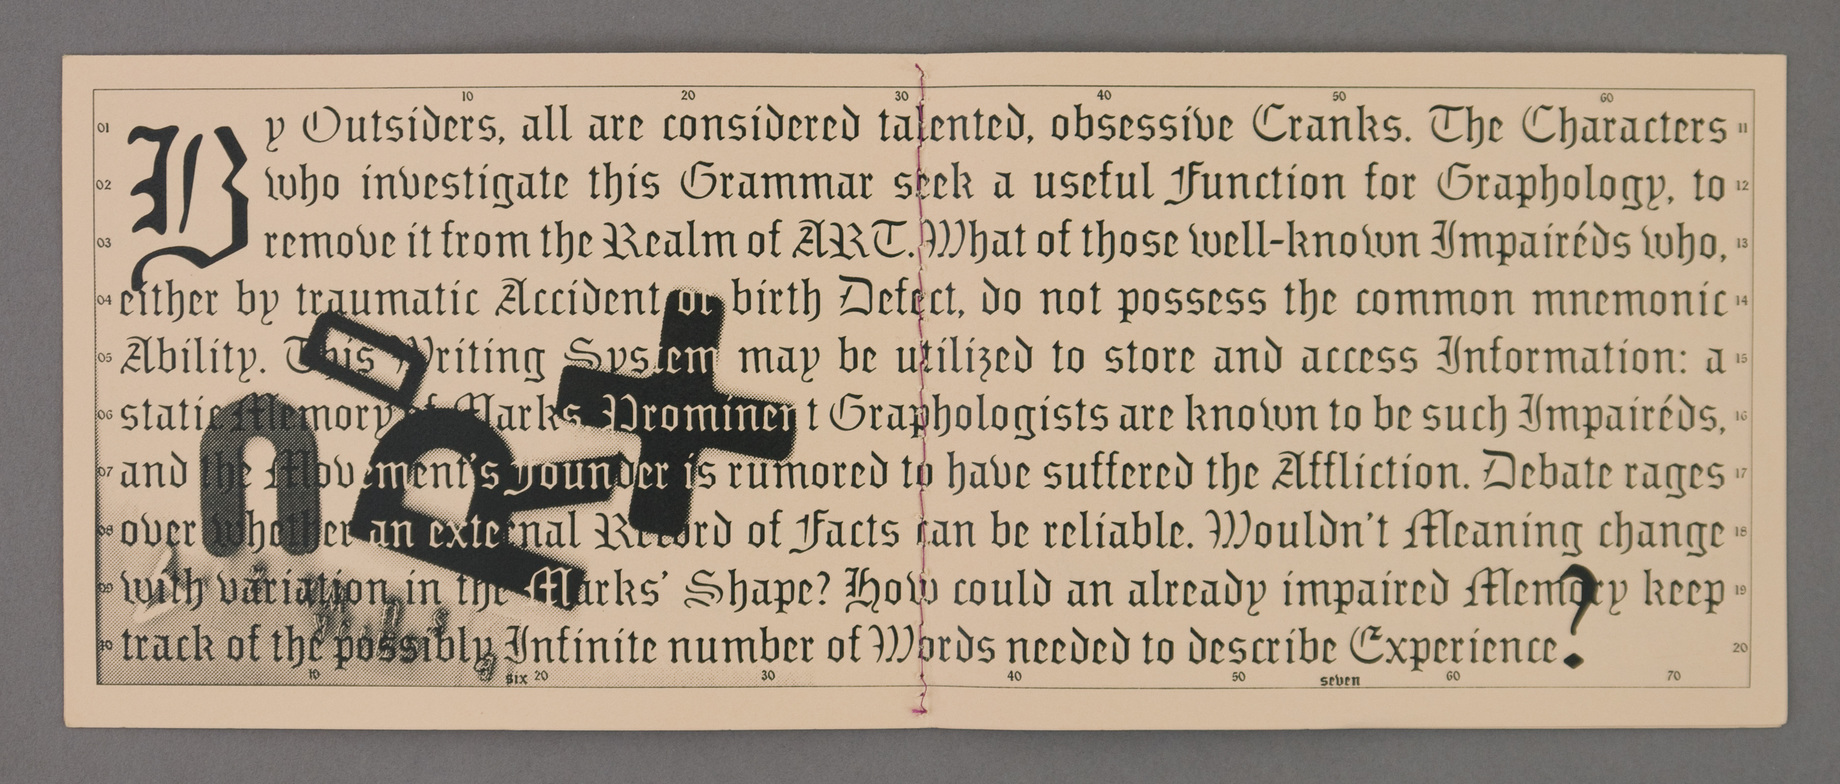 10 20 30 40 50 60
01 By Outsiders, all are considered talented, obsessive Cranks. The Characters 11
02 who investigate this Grammar seek a useful Function for Graphology, to 12
03 remove it from the Realm of ART. What of those well-known Impairéds who, 13
04 either by traumatic Accident or birth Defect, do not possess the common mnemonic 14
05 Ability. This Writing System may be utilized to store and access Information: a 15
06 static Memory of Marks Prominent Graphologists are known to be such Impairéds, 16
07 and the Movement's Founder is rumored to have suffered the Affliction. Debate rages 17
08 over whether an external Record of Facts can be reliable. Wouldn't Meaning change 18
09 with variation in the Marks' Shape? How could an already impaired Memory keep 19
10 track of the possibly Infinite number of Words needed to describe Experience? 20
10 six 20 30 40 50 seven 60 70